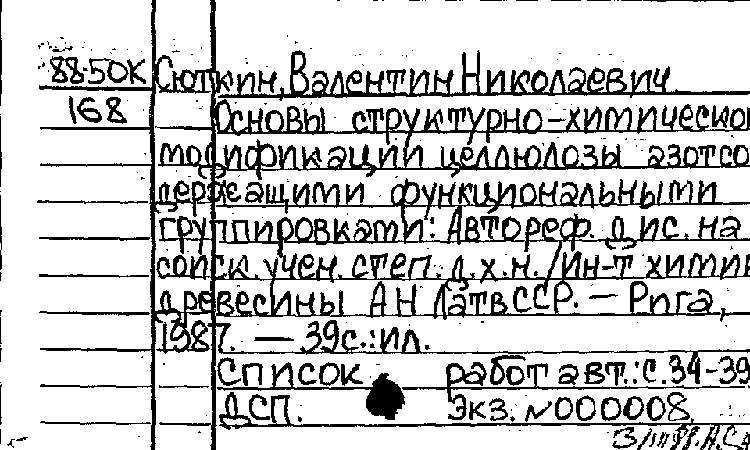 88-50К Сюткин, Валентин Николаевич
168 Основы структурно-химической
модификации целлюлозы азотсо
держащими функциональными
группировками: Автореф. дис. на
соиск. учен. степ. д.х.н./Ин-т химии
древесины АН ЛатвССР. — Рига,
1987. — 39с.:ил.
Список работ авт.: с.34-39
ДСП. Экз. №000008